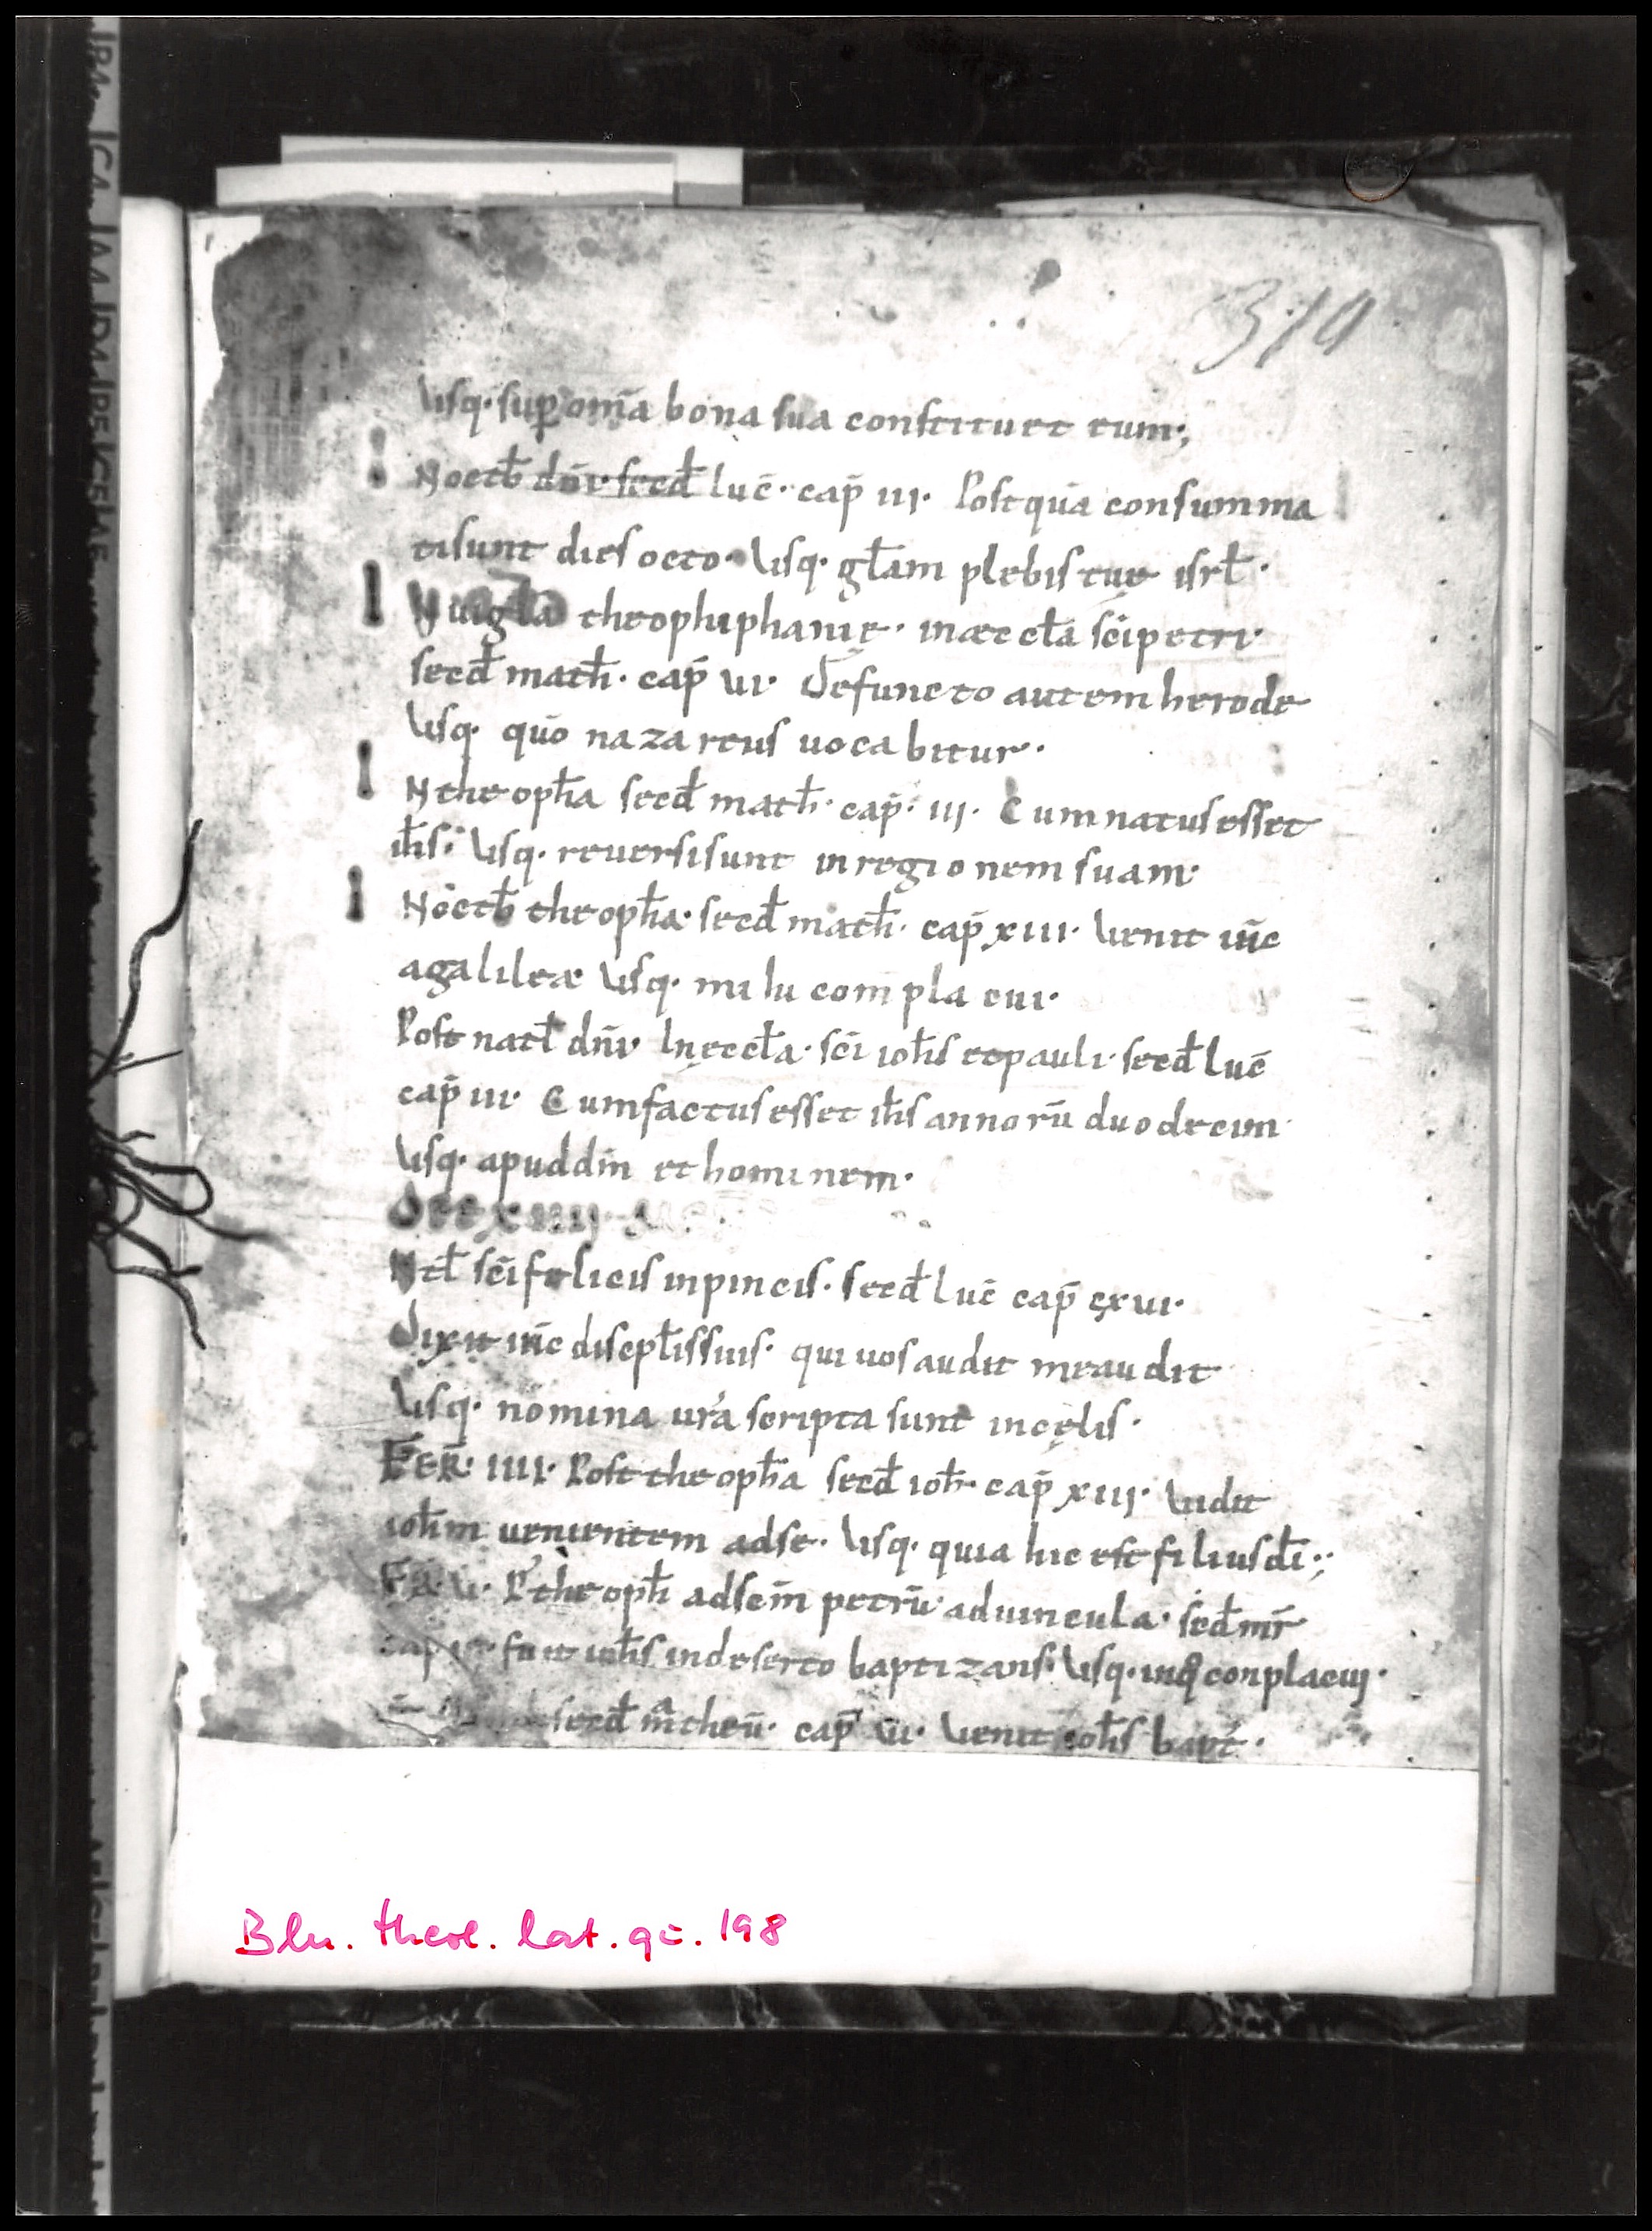 319
Usq· sup om̄a bona sua constituet eum;
IN octb̄ dn̄i· secd̄ luc̄· cap̄ III· Postquā consumma
ti sunt dies octo· Usq· gl̄am plebis tuę isrl̄·
IN uigla theophiphanię· in æccl̄a sc̄i petri·
secd̄ math̄· cap̄ VI· Defuncto autem herode
Usq· quō nazareus uocabitur·
IN theoph̄a secd̄ math̄· cap̄· III· Cum natus esset
ih̄s· Usq· reuersi sunt in regionem suam·
IN octb̄ theoph̄a· secd̄ math̄· cap̄ XIII· Uenit ih̄c
a galileæ Usq· mihi complacui·
Post natl̄ dn̄i· In ęccl̄a· sc̄i ioh̄is et pauli· secd̄ luc̄
cap̄ III· Cum factus esset ih̄s annorū duodecim·
Usq· apud dm̄ et hominem·
Die XIIII
Ntl̄ sc̄i felicis in pincis· secd̄ luc̄ cap̄ CXVI·
Dixit ih̄c discipl̄is suis· qui uos audit me audit
Usq· nomina ur̄a scripta sunt in cęlis·
FER· IIII· Post theoph̄a secd̄ ioh̄· cap̄ XIII· Uidit
ioh̄m uenientem ad se· Usq· quia hic est filius dī;
Fr̄· U· P' theoph̄ ad scm̄ petrū ad uincula· secd̄ mr̄
cap fuit ioh̄s in deserto baptizans· Usq· in q conplacui·
secd̄ matheū· cap̄ VI· Uenit ioh̄s bapt̄·
Bln. theol. lat. qu. 198